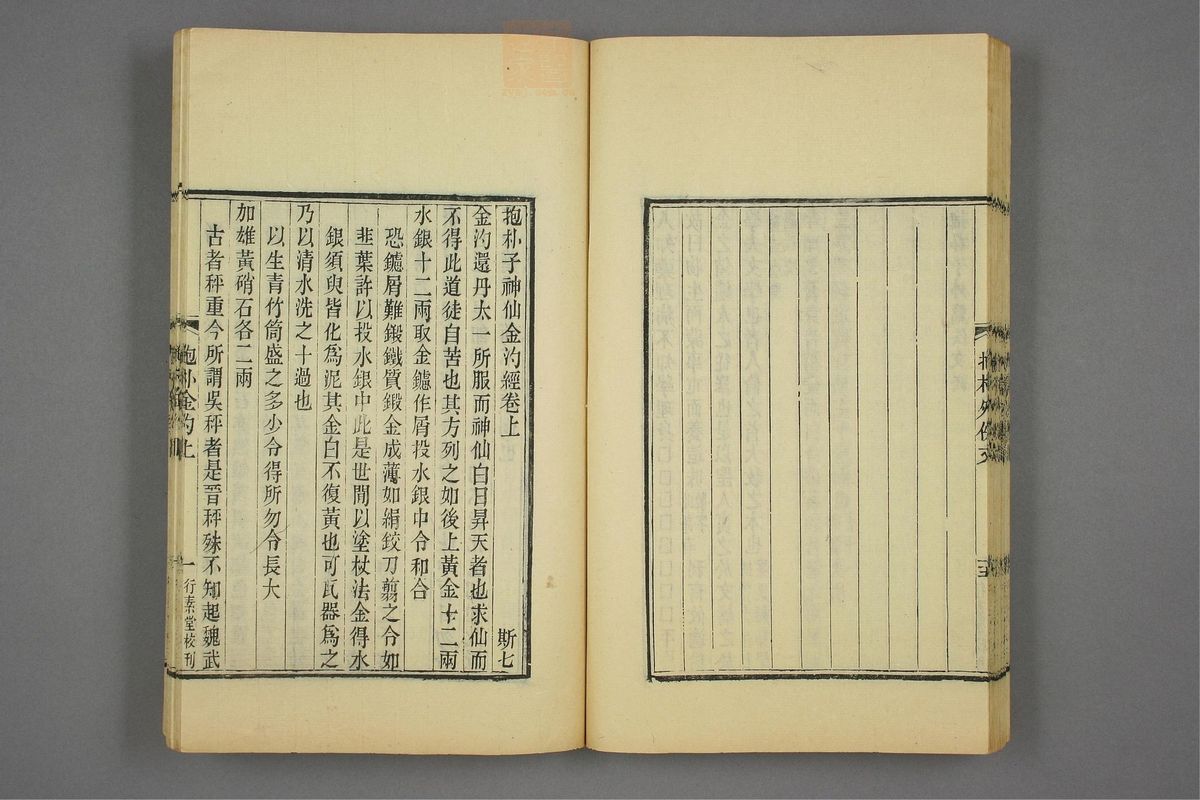 抱朴子神仙金汋經卷上 斯七
金汋還丹太一所服而神仙白日昇天者也求仙而
不得此道徒自苦也其方列之如後上黃金十二兩
水銀十二兩取金鑢作屑投水銀中令和合
恐鑢屑難鍛鐵質鍛金成薄如絹鉸刀翦之令如
韭葉許以投水銀中此是世閒以塗杖法金得水
銀須臾皆化爲泥其金白不復黃也可瓦器爲之
乃以清水洗之十過也
以生青竹筒盛之多少令得所勿令長大
加雄黃硝石各二兩
古者秤重今所謂吳秤者是晉秤殊不知起魏武
抱朴金汋上 一 行素堂校刊